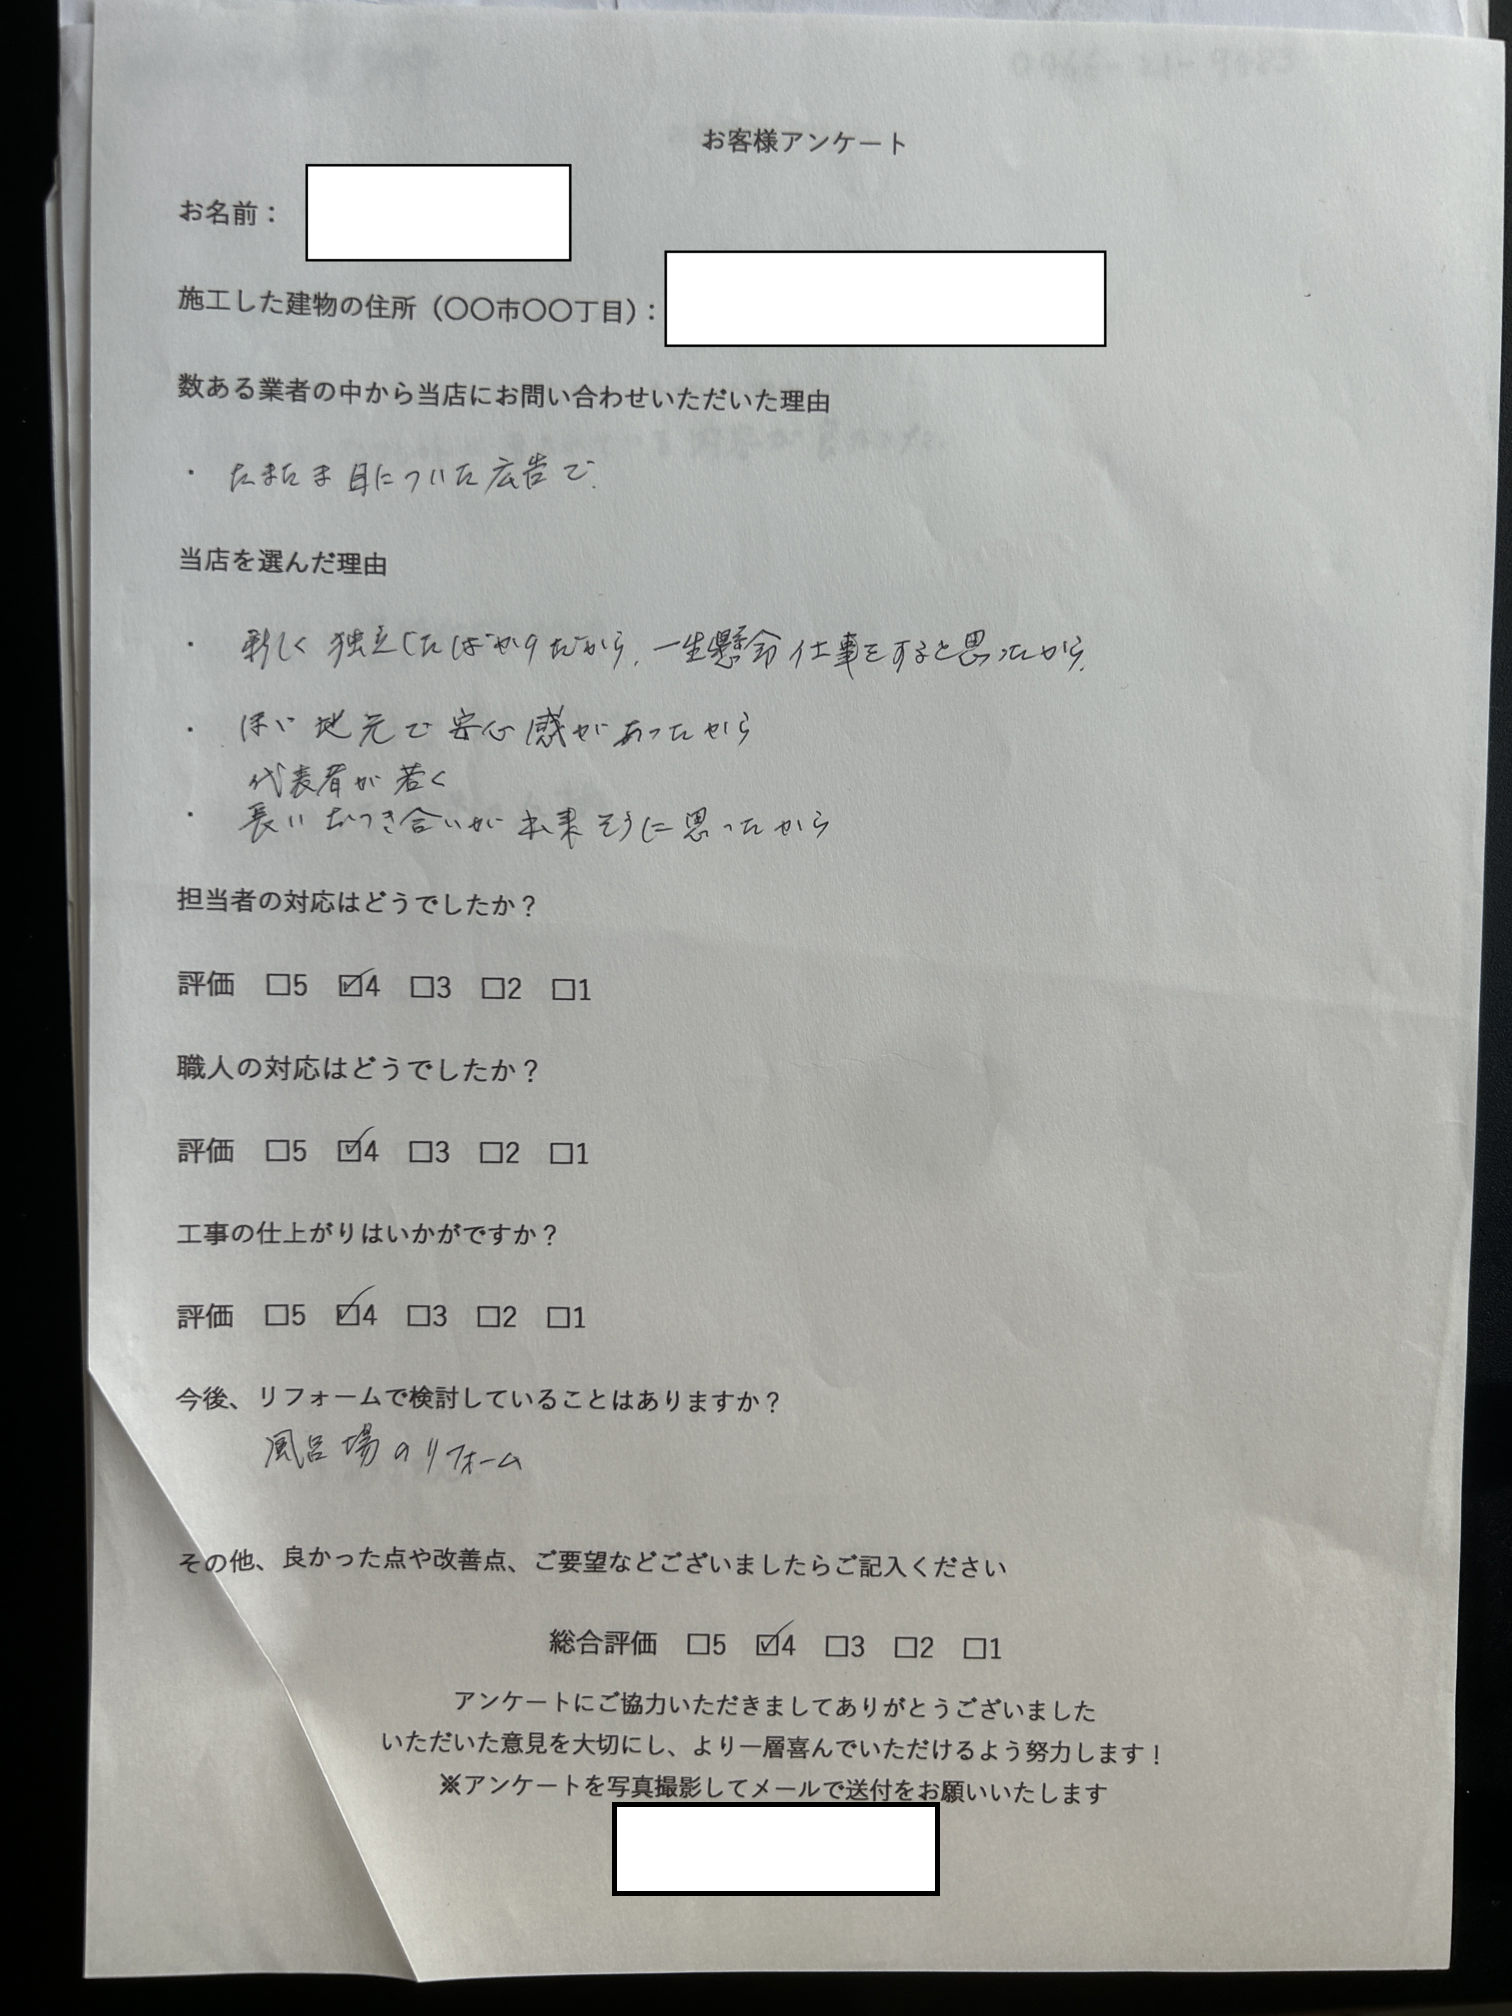 お客様アンケート
お名前：
施工した建物の住所（〇〇市〇〇丁目）：
数ある業者の中から当店にお問い合わせいただいた理由
・ たまたま目についた広告で.
当店を選んだ理由
・ 新しく独立したばかりだから、一生懸命仕事をすると思ったから.
・ ほぼ地元で安心感があったから
代表者が若く
・ 長いおつき合いが出来そうに思ったから
担当者の対応はどうでしたか？
評価 □5 ☑4 □3 □2 □1
職人の対応はどうでしたか？
評価 □5 ☑4 □3 □2 □1
工事の仕上がりはいかがですか？
評価 □5 ☑4 □3 □2 □1
今後、リフォームで検討していることはありますか？
風呂場のリフォーム
その他、良かった点や改善点、ご要望などございましたらご記入ください
総合評価 □5 ☑4 □3 □2 □1
アンケートにご協力いただきましてありがとうございました
いただいた意見を大切にし、より一層喜んでいただけるよう努力します！
※アンケートを写真撮影してメールで送付をお願いいたします